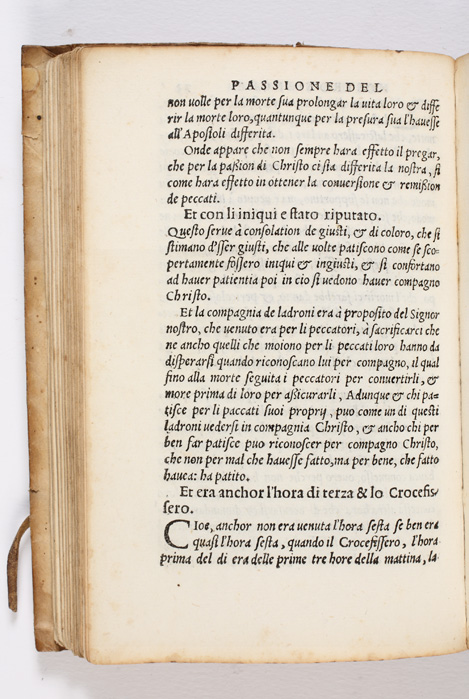 PASSIONE DEL
non uolle per la morte sua prolongar la uita loro & diffe
rir la morte loro, quantunque per la presura sua l'hauesse
all'Apostoli differita.
Onde appare che non sempre hara effetto il pregar,
che per la passion di Christo ci sta differita la nostra, si
come hara effetto in ottener la conuersione & remission
de peccati.
Et con li iniqui e stato riputato.
Questo serue à consolation de giusti, & di coloro, che si
stimano d'esser giusti, che alle uolte patiscono come se sco-
pertamente fossero iniqui & ingiusti, & si confortano
ad hauer patientia poi in cio si uedono hauer compagno
Christo.
Et la compagnia de ladroni era à proposito del Signor
nostro, che uenuto era per li peccatori, à sacrificarci che
ne ancho quelli che moiono per li peccati loro hanno da
disperarsi quando riconoscano lui per compagno, il qual
fino alla morte seguita i peccatori per conuertirli, &
more prima di loro per assicurarli, Adunque & chi pa=
tisce per li paccati suoi proprij, puo come un di questi
ladroni uedersi in compagnia Christo, & ancho chi per
ben far patisce puo riconoscer per compagno Christo,
che non per mal che hauesse fatto, ma per bene, che fatto
hauea: ha patito.
Et era anchor l'hora di terza & lo Crocefis
sero.
CIoe, anchor non era uenuta l'hora sesta se ben era
quasi l'hora sesta, quando il Crocefissero, l'hora
prima del di era delle prime tre hore della mattina, la